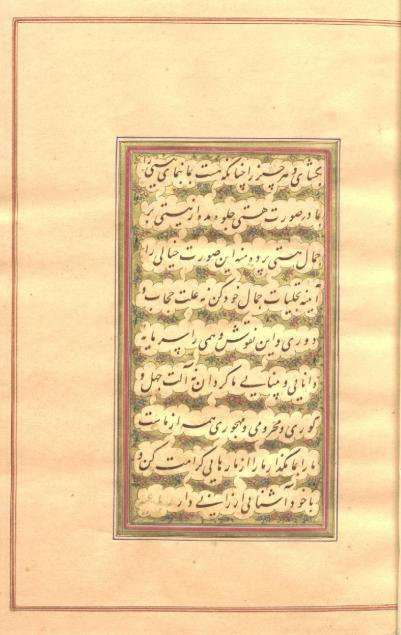 بگشای و هر چیز را چنانکه هست بما بنمای نیستی را
بما در صورت هستی جلوه مده از نیستی بر
جمال هستی پرده منه این صورت خیالی را
آینه تجلیات جمال خود کن نه علت حجاب و
دوری و این نقوش وهمی را سرمایه
دانایی و بینایی ما گردان نه آلت جهل و
کوری و محرومی و مهجوری همه از ماست
ما را بما مگذار ما را از ما رهایی کرامت کن و
با خود آشنایی ارزانی دار